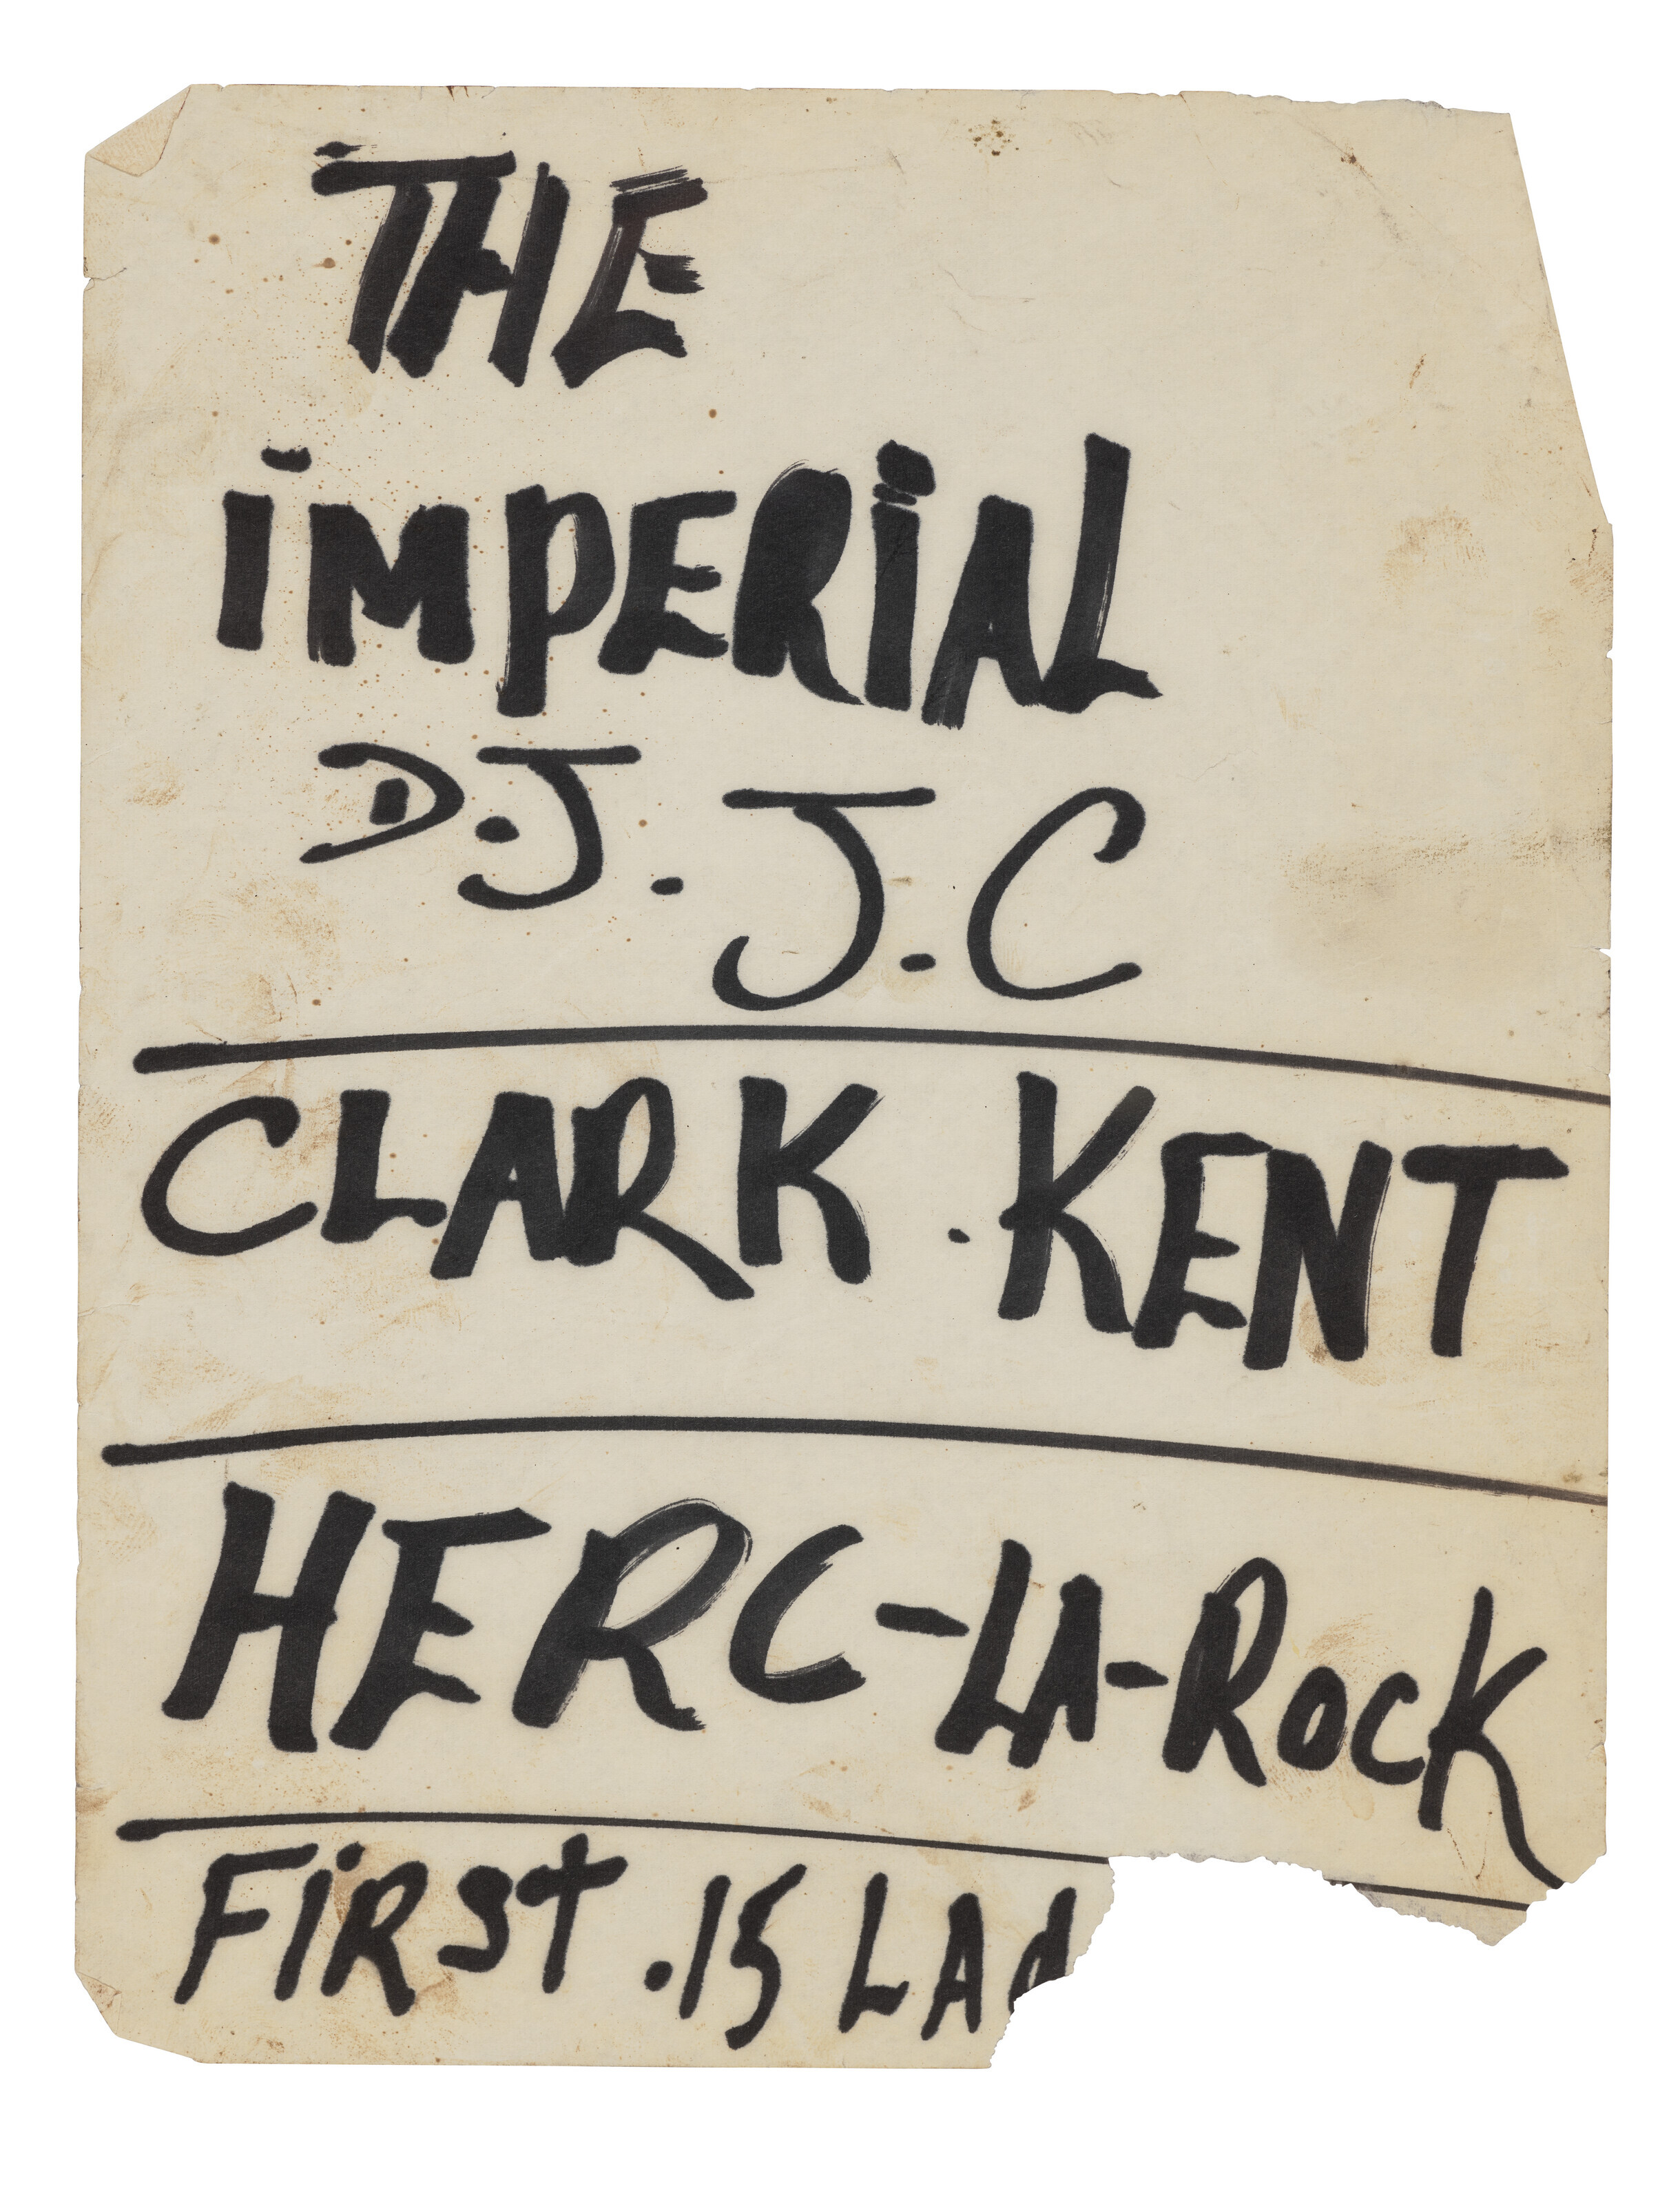 THE
iMPERiAL
D.J. J.C
CLARK . KENT
HERC-LA-ROCK
FiRST .15 LAd